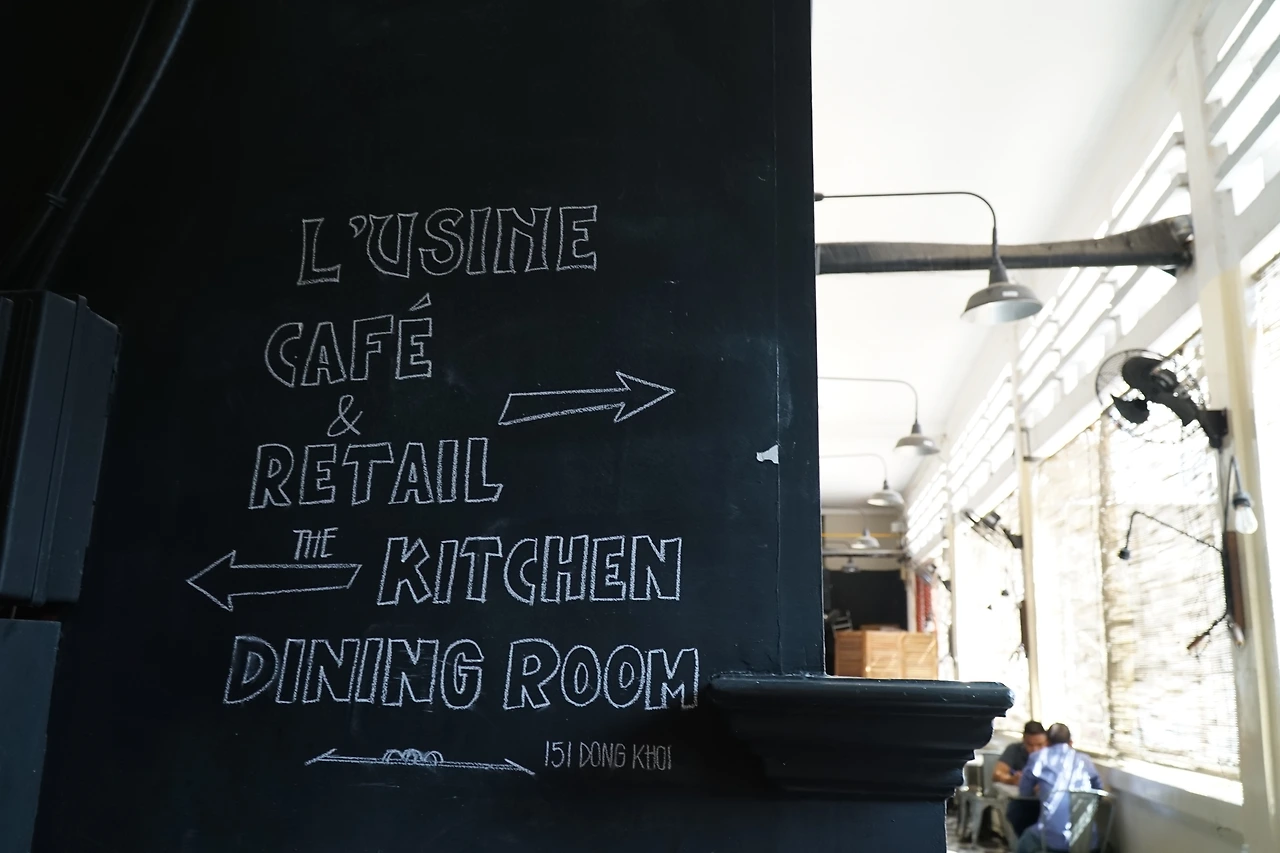 L'USINE
CAFÉ
&
RETAIL
THE KITCHEN
DINING ROOM
151 DONG KHOI